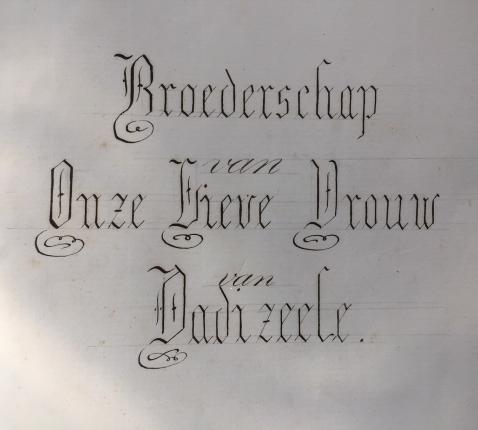 Broederschap
van
Onze Lieve Vrouw
van
Dadizeele.